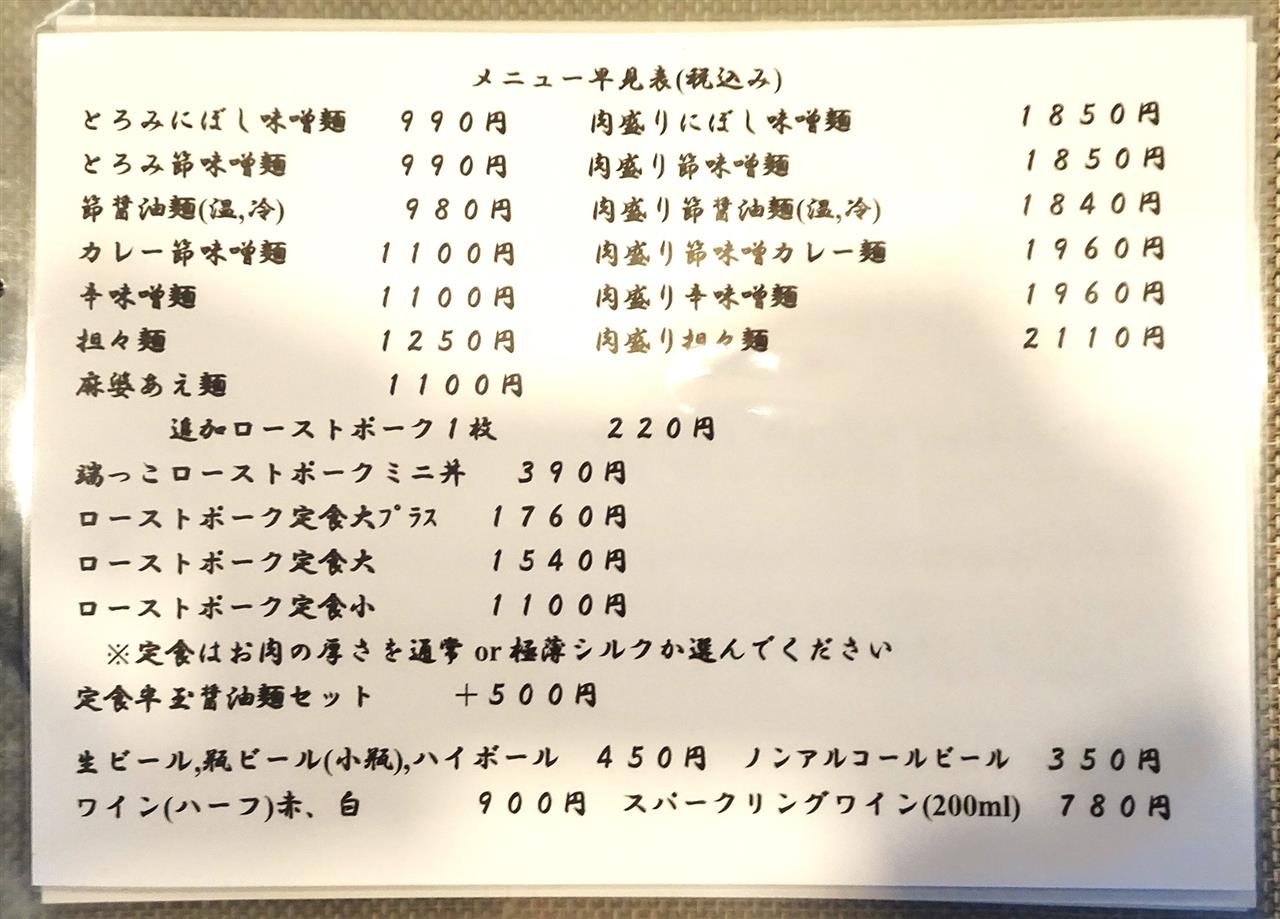 メニュー早見表(税込み)
とろみにぼし味噌麺 990円 肉盛りにぼし味噌麺 1850円
とろみ節味噌麺 990円 肉盛り節味噌麺 1850円
節醤油麺(温,冷) 980円 肉盛り節醤油麺(温,冷) 1840円
カレー節味噌麺 1100円 肉盛り節味噌カレー麺 1960円
辛味噌麺 1100円 肉盛り辛味噌麺 1960円
担々麺 1250円 肉盛り担々麺 2110円
麻婆あえ麺 1100円
追加ローストポーク1枚 220円
端っこローストポークミニ丼 390円
ローストポーク定食大プラス 1760円
ローストポーク定食大 1540円
ローストポーク定食小 1100円
※定食はお肉の厚さを通常 or 極薄シルクか選んでください
定食卑玉醤油麺セット +500円
生ビール,瓶ビール(小瓶),ハイボール 450円 ノンアルコールビール 350円
ワイン(ハーフ)赤、白 900円 スパークリングワイン(200ml) 780円